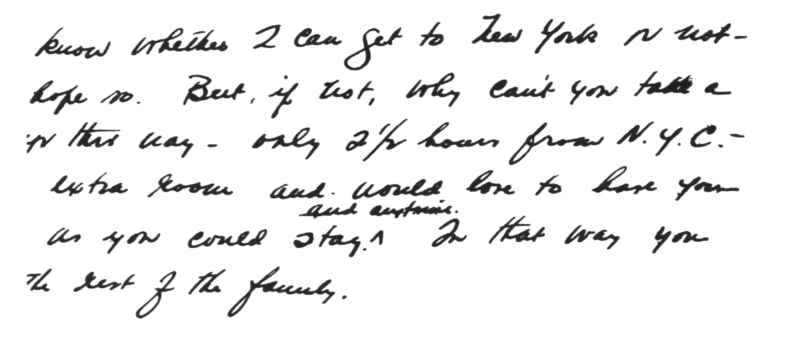 know whether I can get to New York or not -
hope so. But, if not, why can't you take a
this way - only 2 1/2 hours from N.Y.C. -
extra room and would love to have you
and anytime.
as you could stay.^ In that way you
the rest of the family.